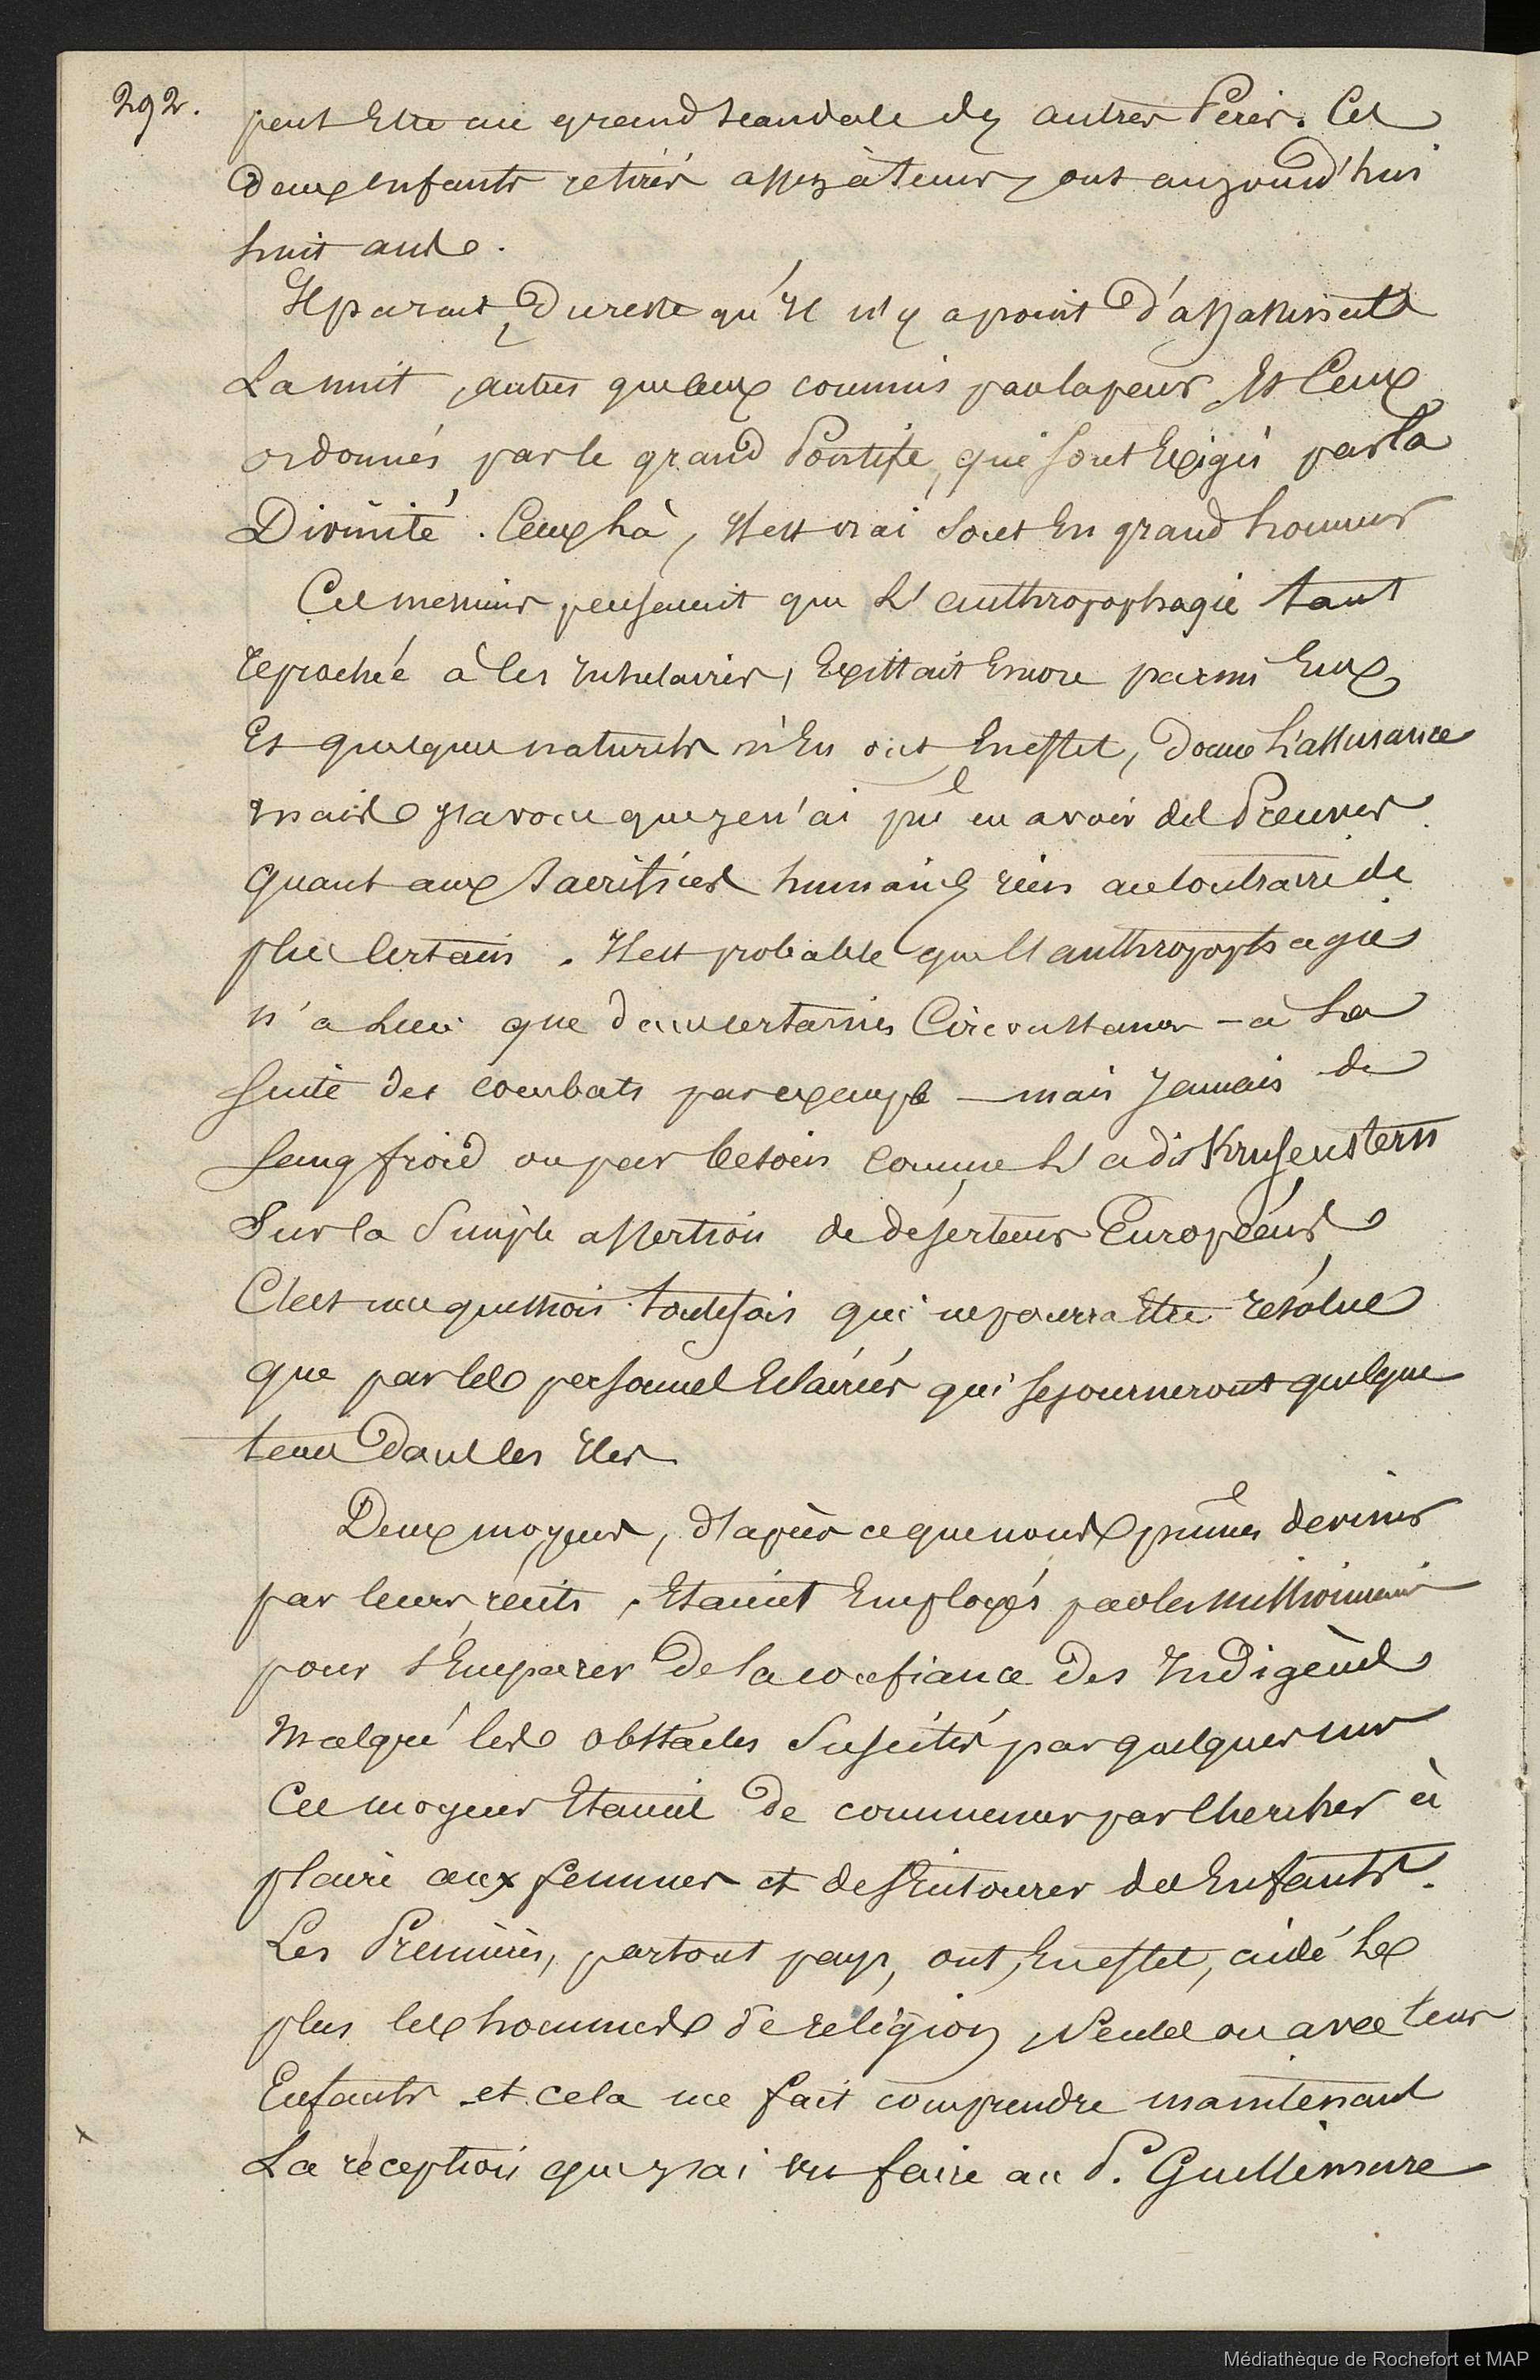 292.
peut Etre au grand Scandale des autres Pères. Ces
deux enfants retirés assez à tems, ont aujourd'hui
huit ans.
Il parait, du reste qu'Il n'y a point d'assassinats
La nuit, autres que ceux commis par la peur, Et Ceux
ordonnés par le grand Pontife, qui sont Exigés par la
Divinité. Ceux là, Il est vrai sont En grand honneur
Ces messieurs pensaient que L'anthropophagie tant
reprochée à ces Insulaires, Existait Encore parmi Eux
Et quelques naturels m'En ont, En effet, donné L'assurance
mais J'avoue que je n'ai pû en avoir des Preuves.
Quant aux Sacrifices humains rien au Contraire de
plus Certain. Il est probable que L'anthropophagie
n'a Lieu que dans certaines Circonstances - à La
suite des combats par exemple - mais Jamais de
sang froid ou par besoin Comme L'a dit Krusenstern
Sur la Simple assertion de déserteurs Européens
C'est une question toutefois qui ne pourra Etre résolue
que par des personnes Eclairées qui séjourneront quelque
tems dans les Iles.
Deux moyens, d'après ce que nous pûmes deviner
par leurs récits, Etaient Employés par les missionnaires
pour s'Emparer de la confiance des Indigènes
Malgré les obstacles Suscités par quelques uns
Ces moyens Etaient de commencer par Chercher à
plaire aux femmes et de s'Entourer des Enfants.
Les Premières, partout pays, ont, En effet, aidé Le
plus les hommes de religion, Seules ou avec leurs
Enfants - et cela me fait comprendre maintenant
La réception que J'ai vu faire au P. Guillemare
Médiathèque de Rochefort et MAP